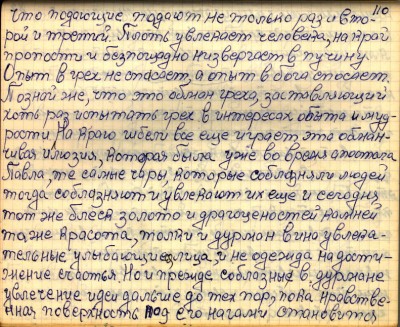 110
что подающие падают не только раз и вто-
рой и третий. Плоть увлекает человека, на край
пропости и безпощадно низвергает в пучину
Опыт в грех не спасает, а опыт в бога спасает.
Познай же, что это обман греха, заставляющий
хоть раз испытать грех в интересах опыта и муд-
рости. На краю гибели все еще играет эта обман-
чивая илюзия, которая была уже во время апостола
Павла, те самые чары, которые соблазняли людей
тогда соблазняют и увлекают их еще и сегодня,
тот же блеск золото и драгоценостей, камней
та же красота, толки и дурман вина увлека-
тельные улыбающие лица, и не одежда на дости-
жение счастья. Но и прежде соблазные в дурмане
увлечение идеи дальше до тех пор, пока нравстве-
нная поверхность под его ногами становится